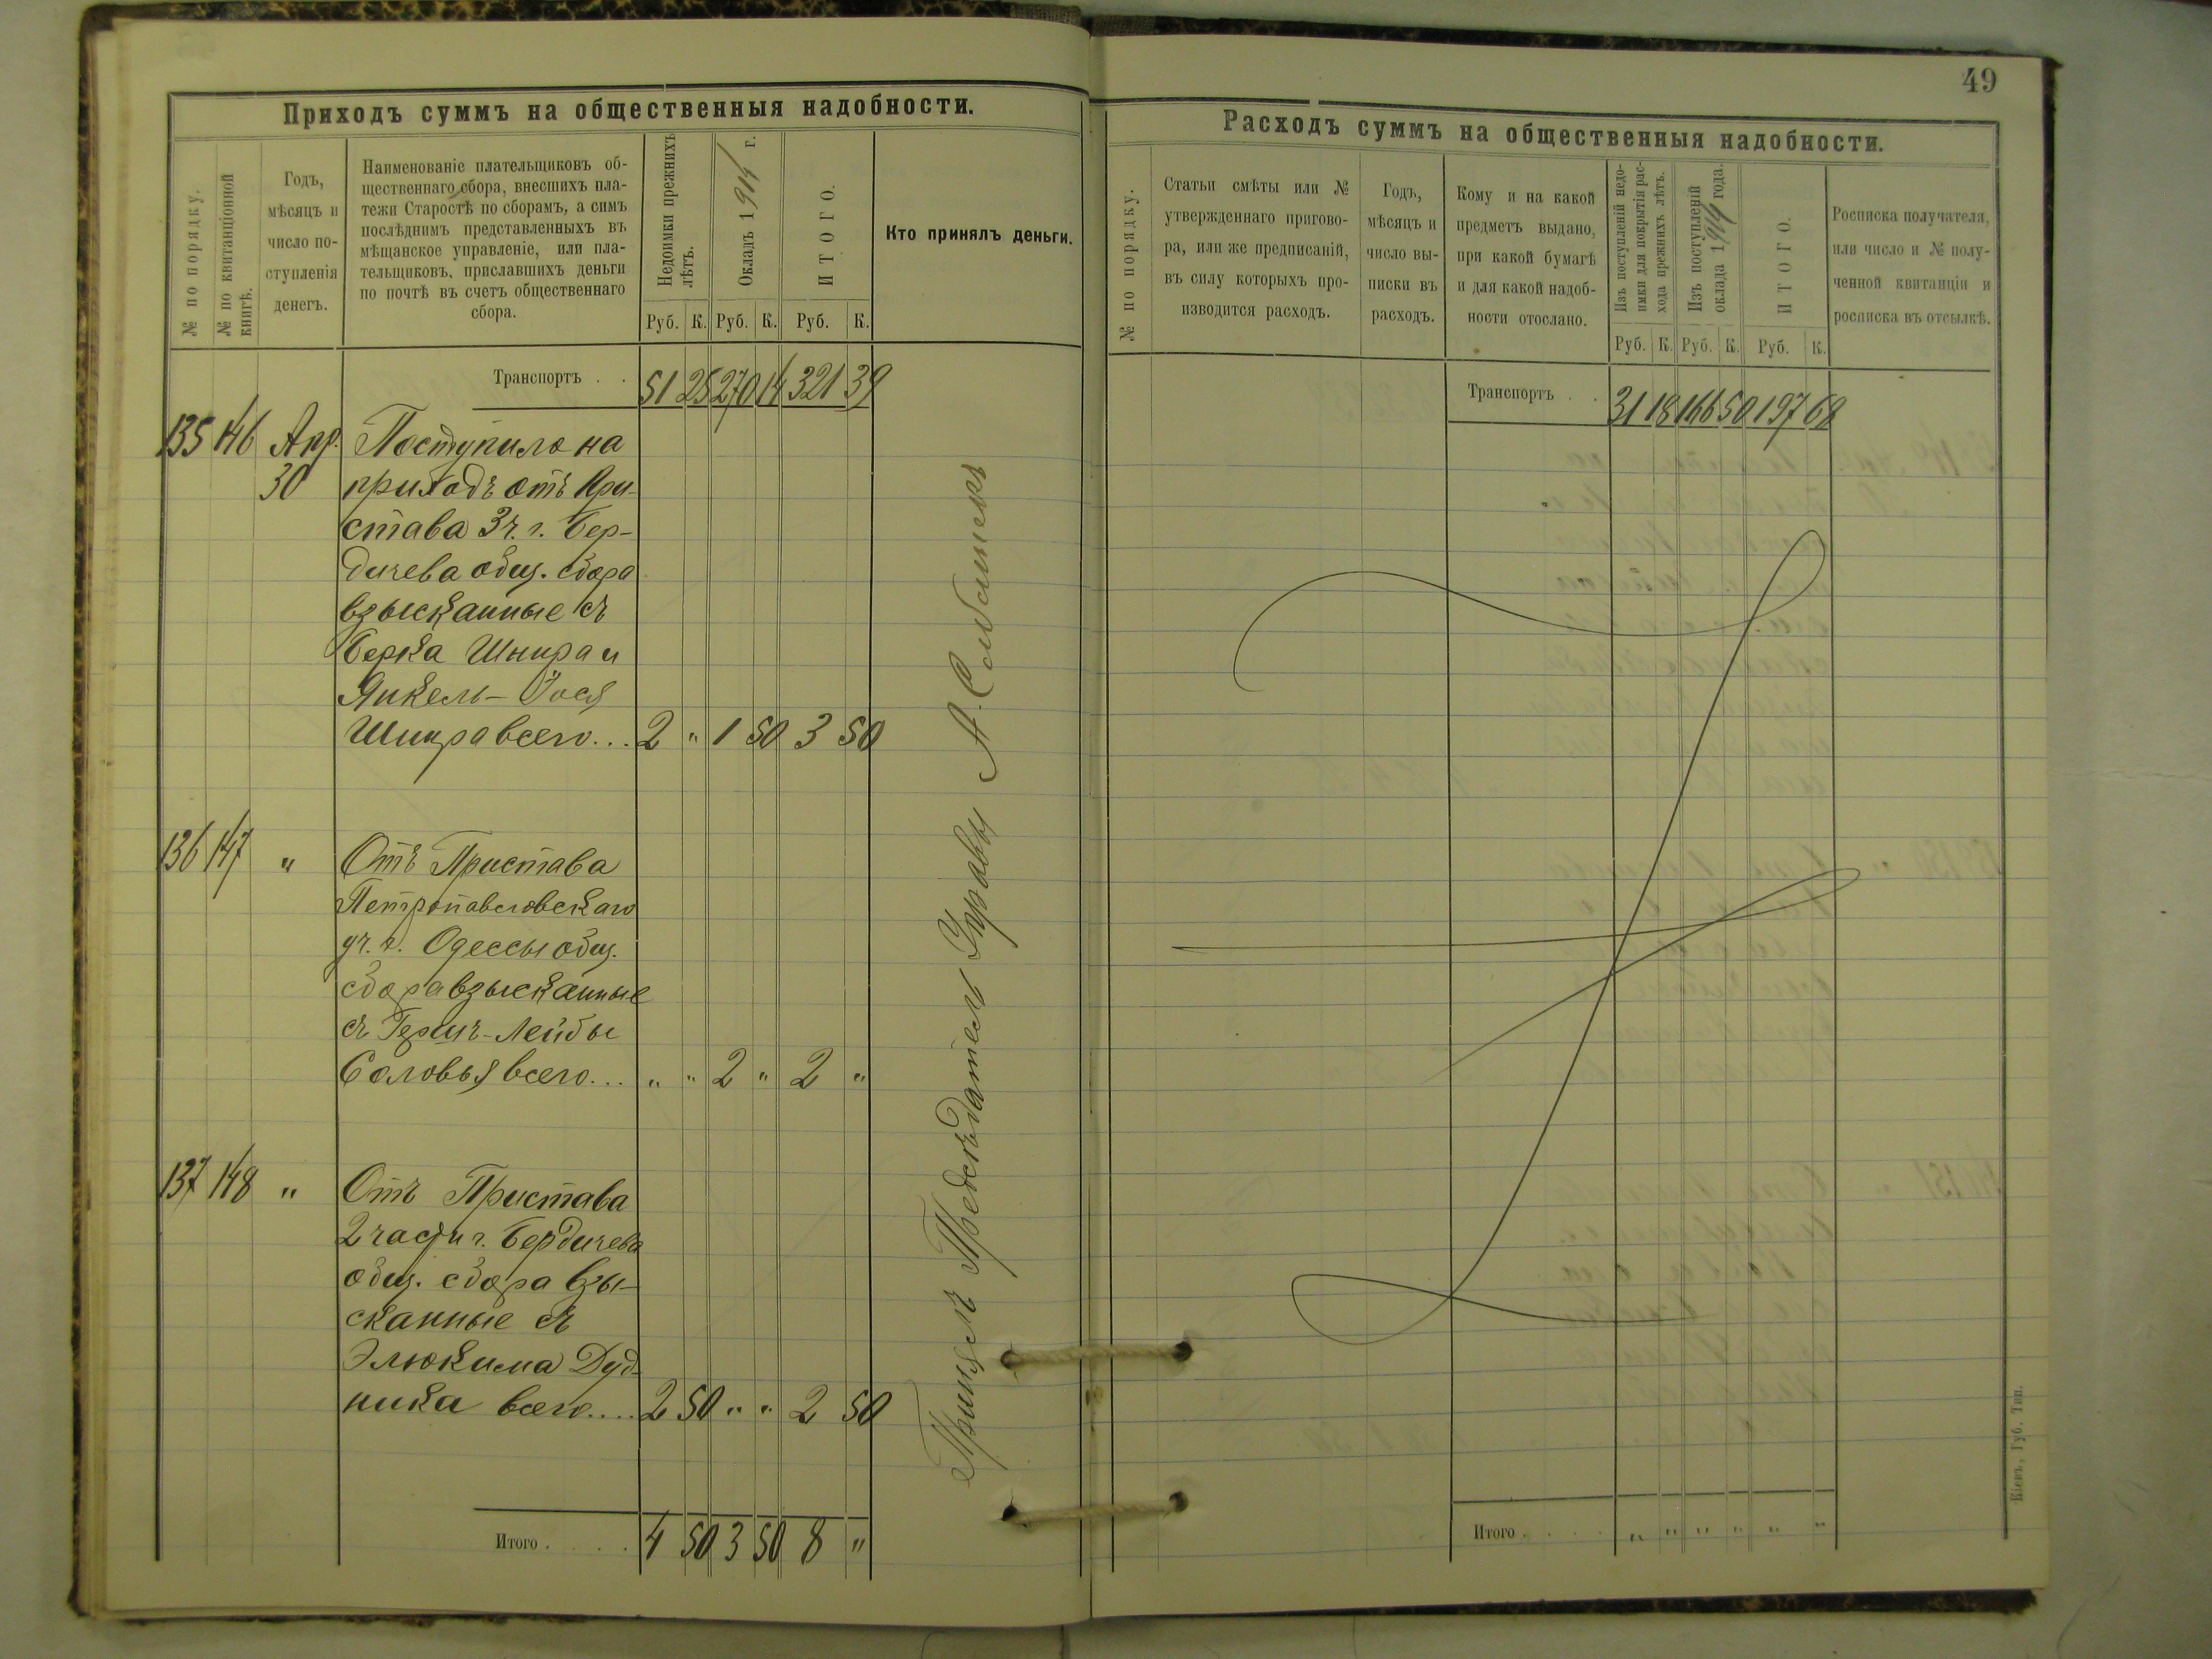 49
Приходъ суммъ на общественныя надобности.
№ по порядку.
№ по квитанціонной
книгѣ.
Годъ,
мѣсяцъ и
число по-
ступленія
денегъ.
Наименованіе плательщиковъ об-
щественнаго сбора, внесшихъ пла-
тежи Старостѣ по сборамъ, а симъ
послѣднимъ представленныхъ въ
мѣщанское управленіе, или пла-
тельщиковъ, приславшихъ деньги
по почтѣ въ счетъ общественнаго
сбора.
Недоимки прежнихъ
лѣтъ.
Окладъ 1914 г.
ИТОГО.
Кто принялъ деньги.
Руб. К. Руб. К. Руб. К.
Транспортъ . . 51 25 270 14 321 39
135 146 Апр. Поступило на
30 приходъ отъ При-
става 3 ч. г. Бер-
дичева общ. сбора
взысканные съ
Берка Шнира и
Янкель-Іося
Шнира всего... 2 " 1 50 3 50
136 147 " Отъ Пристава
Петропавловскаго
уч. г. Одессы общ.
сбора взысканные
съ Гершъ-Лейбы
Соловья всего... " " 2 " 2 "
137 148 " Отъ Пристава
2 части г. Бердичева
общ. сбора взы-
сканные съ
Элюкима Дуд-
ника всего.... 2 50 " " 2 50
Итого . . . . 4 50 3 50 8 "
Предсѣдатель Управы А.
Расходъ суммъ на общественныя надобности.
№ по порядку.
Статьи смѣты или №
утвержденнаго пригово-
ра, или же предписаній,
въ силу которыхъ про-
изводится расходъ.
Годъ,
мѣсяцъ и
число вы-
писки въ
расходъ.
Кому и на какой
предметъ выдано,
при какой бумагѣ
и для какой надоб-
ности отослано.
Изъ поступленій недо-
имки для покрытія рас-
хода прежнихъ лѣтъ.
Изъ поступленій
оклада 1914 года.
ИТОГО.
Росписка получателя,
или число и № полу-
ченной квитанціи и
росписка въ отсылкѣ.
Руб. К. Руб. К. Руб. К.
Транспортъ . . 31 18 166 50 197 68
Итого . . . . " " " " " "
Кіевъ, Губ. Тип.